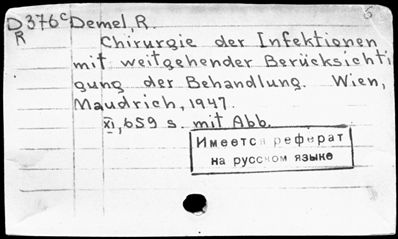 D376c Demel, R.
R
Chirurgie der Infektionen
mit weitgehender Berücksichti
gung der Behandlung. Wien,
Maudrich, 1947.
XI, 659 s. mit Abb.
Имеется реферат
на русском языке